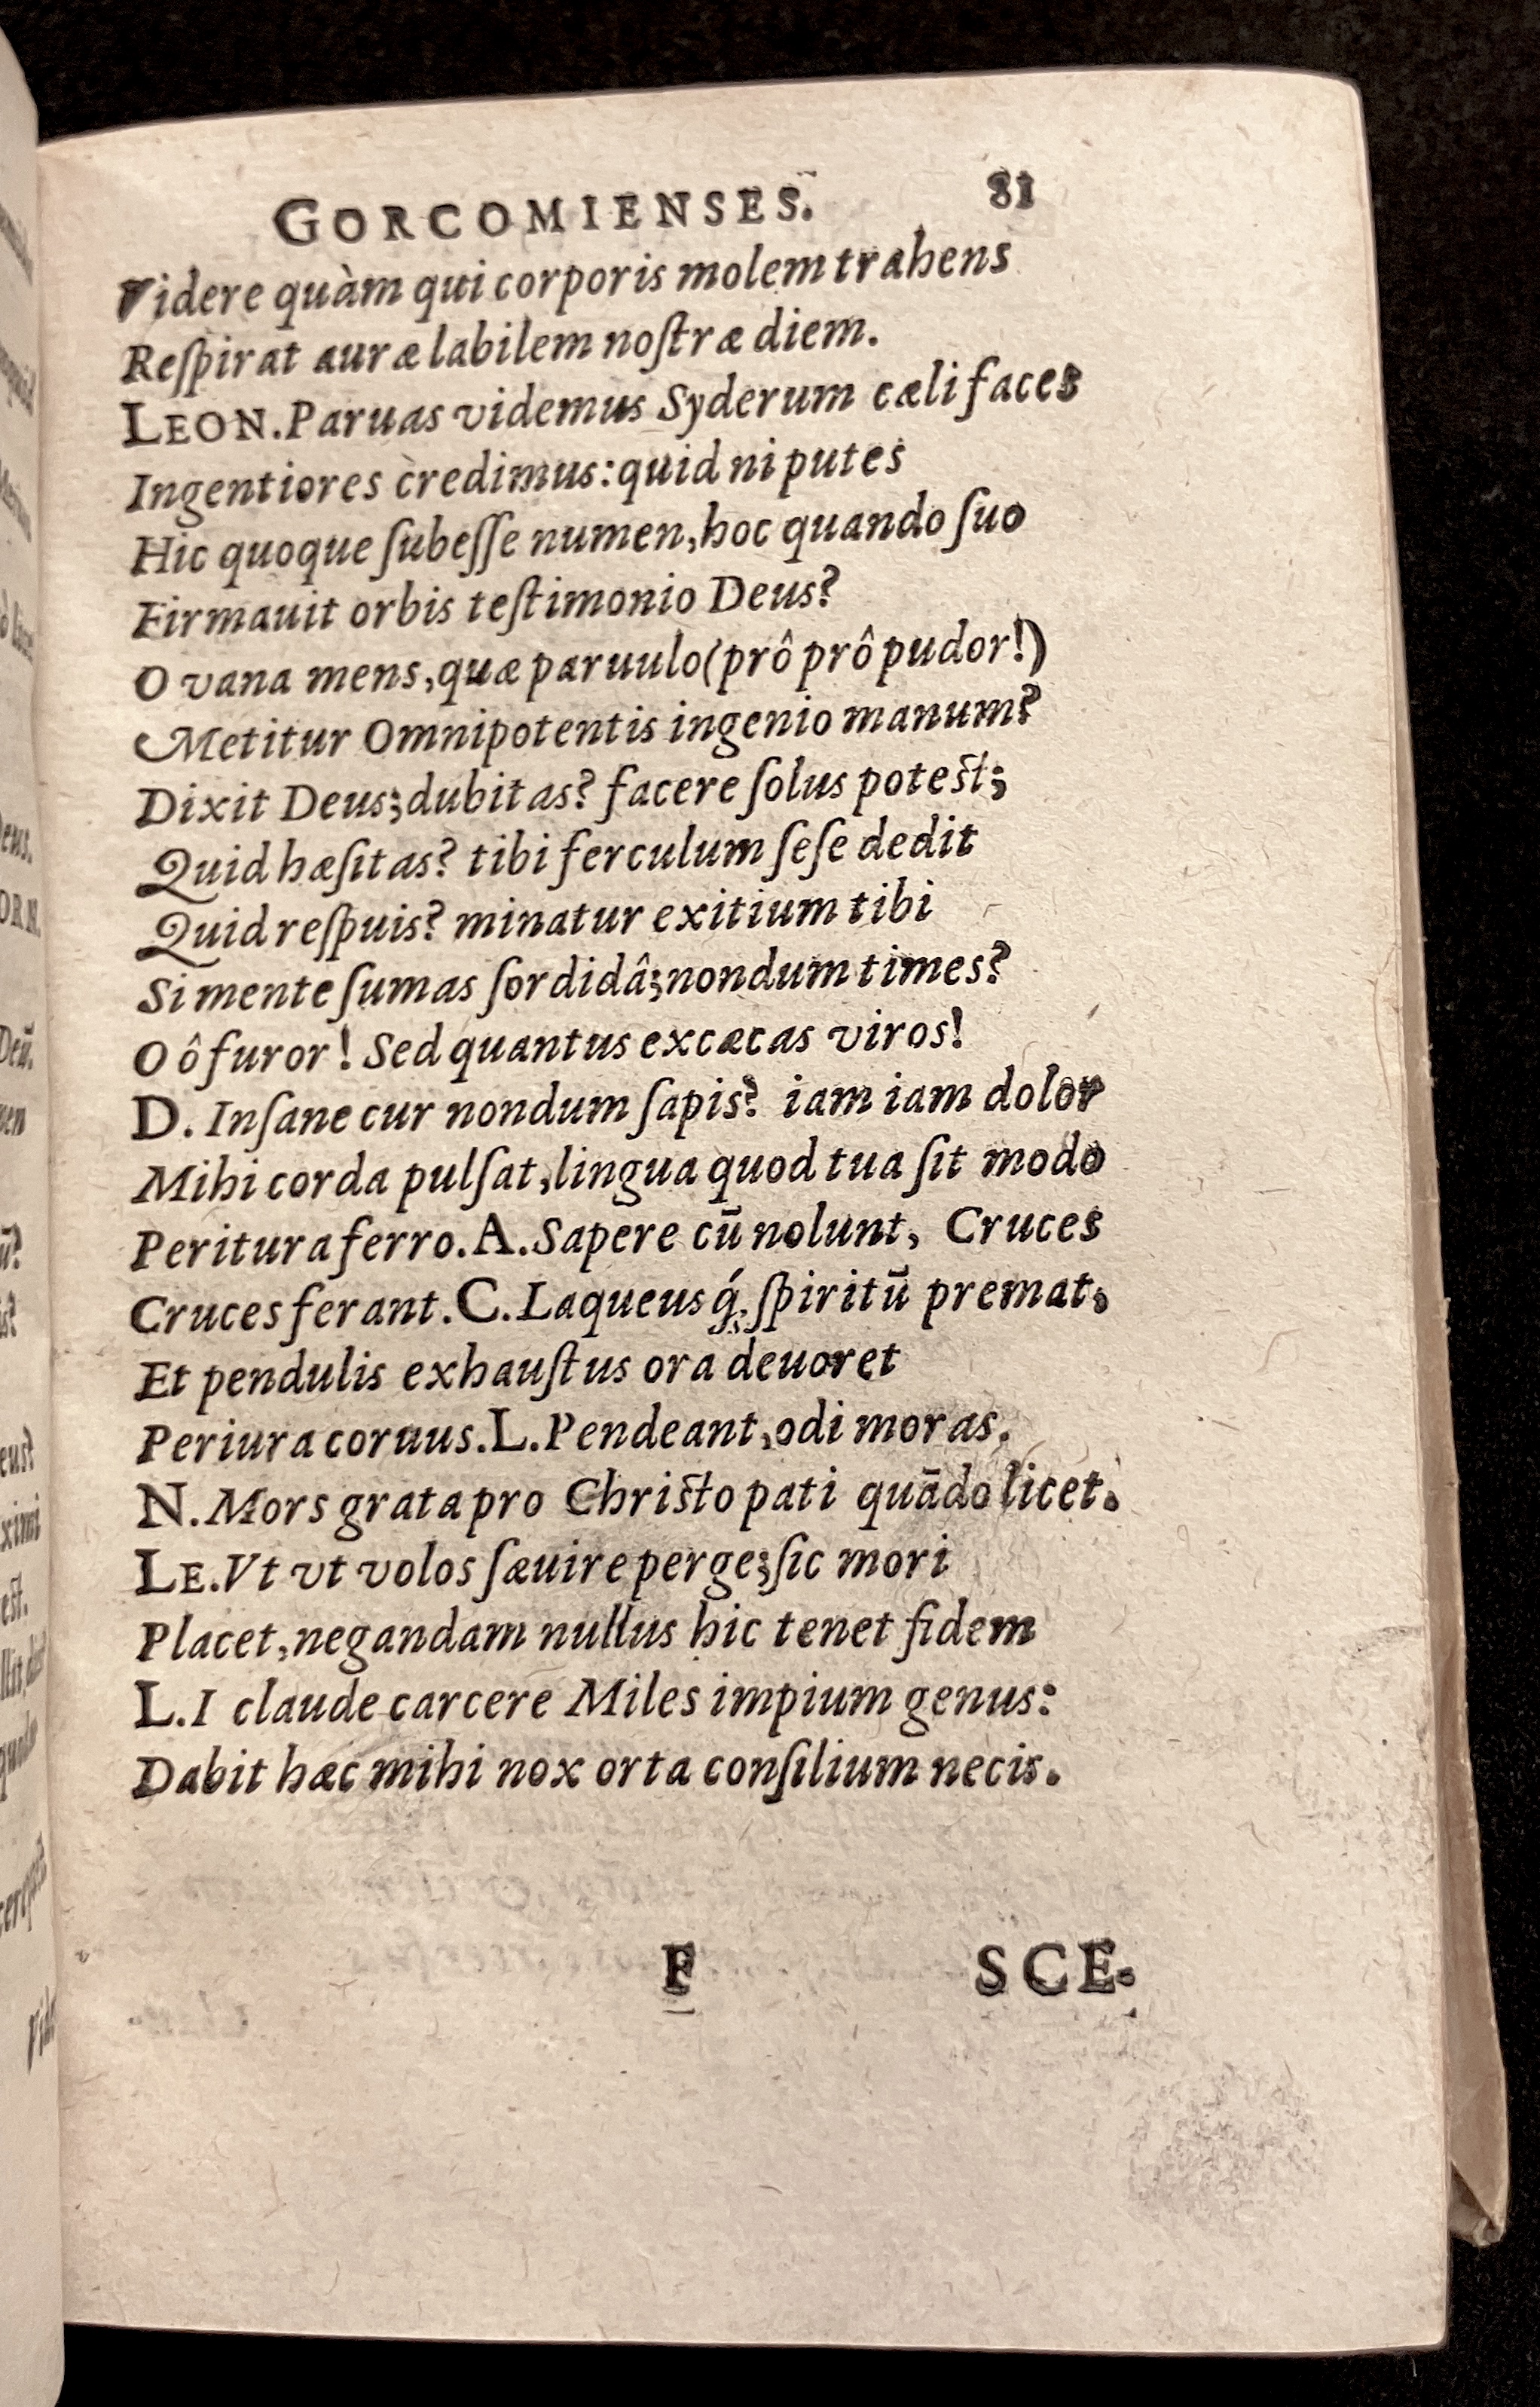 GORCOMIENSES. 81
Videre quàm qui corporis molem trahens
Reſpirat auræ labilem noſtræ diem.
LEON. Paruas videmus Syderum cæli faces
Ingentiores credimus: quid ni putes
Hic quoque ſubeſſe numen, hoc quando ſuo
Firmauit orbis teſtimonio Deus?
O vana mens, quæ paruulo (prô prô pudor!)
Metitur Omnipotentis ingenio manum?
Dixit Deus; dubitas? facere ſolus poteſt;
Quid hæſitas? tibi ferculum ſeſe dedit
Quid reſpuis? minatur exitium tibi
Si mente ſumas ſordidâ; nondum times?
O ô furor! Sed quantus excæcas viros!
D. Inſane cur nondum ſapis? iam iam dolor
Mihi corda pulſat, lingua quod tua ſit modo
Peritura ferro. A. Sapere cū nolunt, Cruces
Cruces ferant. C. Laqueusq́; ſpiritū premat;
Et pendulis exhauſtus ora deuoret
Periura coruus. L. Pendeant, odi moras.
N. Mors grata pro Chriſto pati quādo licet.
LE. Vt vt volos ſæuire perge; ſic mori
Placet, negandam nullus hic tenet fidem
L. I claude carcere Miles impium genus:
Dabit hæc mihi nox orta conſilium necis.
F SCE-